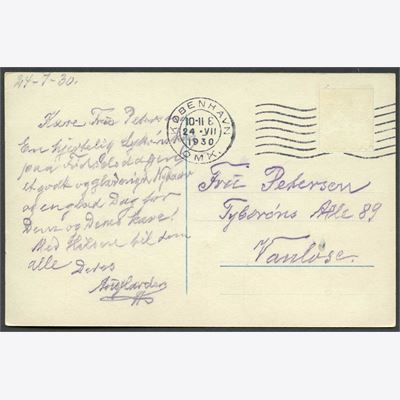 24-7-30.
Kære Frue Petersen
En hjertelig Lykønskning
paa Fødselsdagen
et godt og glædeligt Nytaar
og en glad Dag for
Dem og Deres kære!
Med Hilsen til dem
alle Deres
KØBENHAVN
OMK.
10-11 E
24-VII
1930
Frue Petersen
Tyborøns Alle 89
Vanløse.